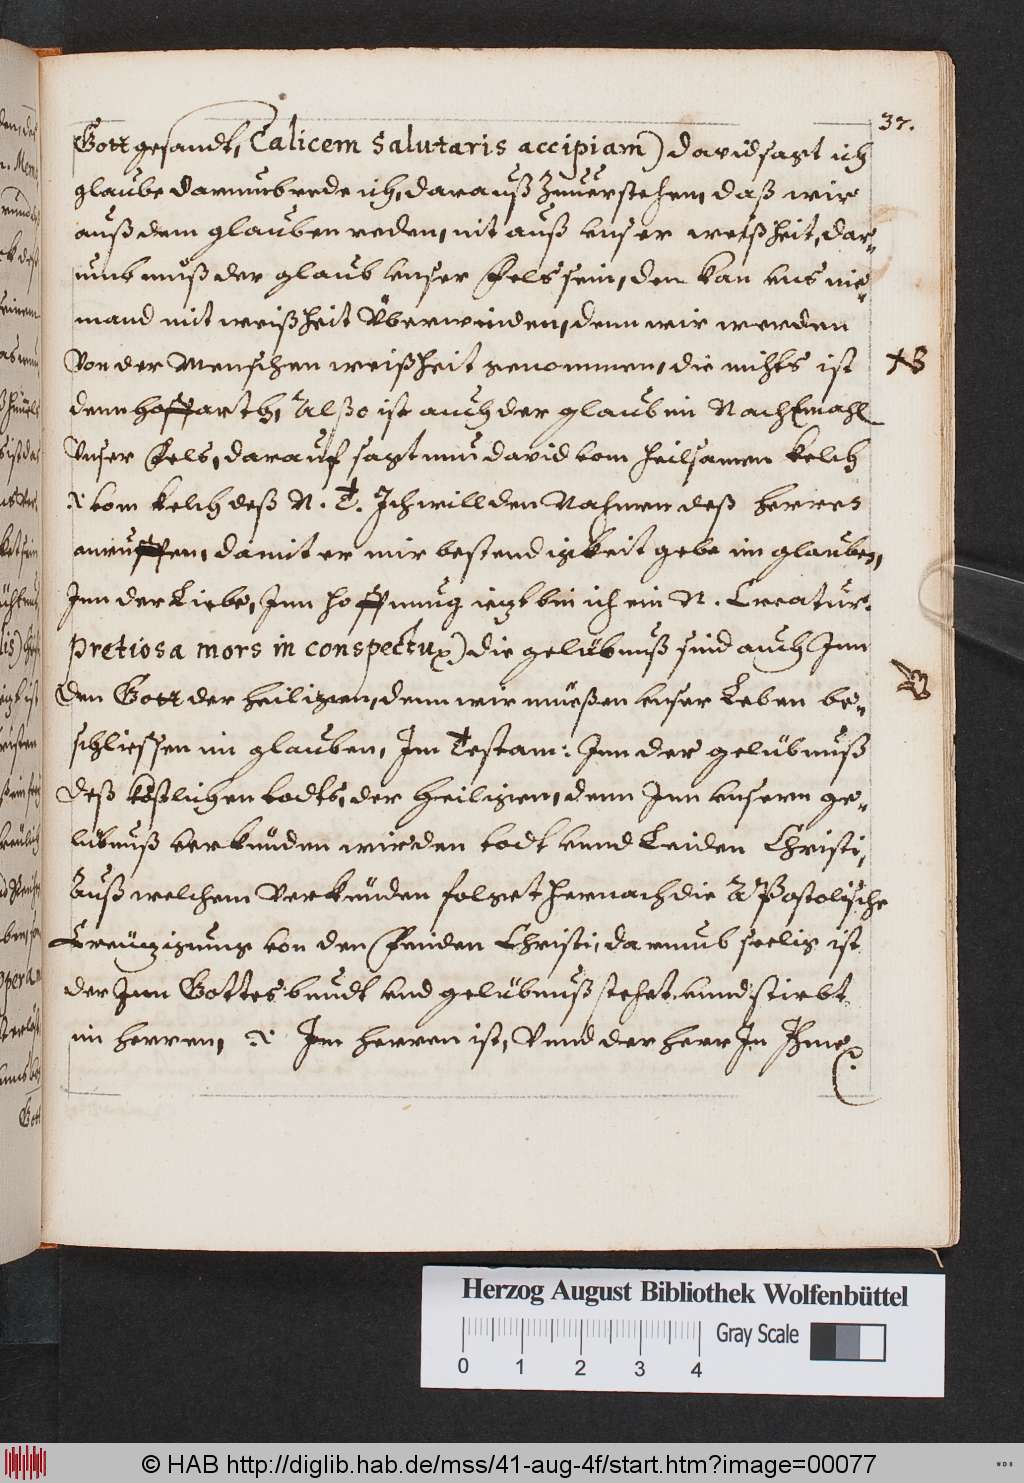 37.
Gott gesandt, Calicem Salutaris accipiam) david sagt ich
glaube darumb rede ich, darauß Zuuerstehen, daß wir
auß dem glauben reden, nit auß unser weißheit, dar=
umb muß der glaub unser Fels sein, den kan uns nie=
mand mit weißheit Überwinden, denn wir werden
Von der Menschen weißheit genommen, die nichts ist
denn hoffarth, Alßo ist auch der glaub im Nachtmahl
Unser Fels, darauf sagt nun david vom heilsamen kelch
vom kelch deß N. T. Ich will den Nahmen deß herren
anruffen, damit er mir bestendigkeit gebe im glauben,
Inn der Liebe, Inn hoffnung ietzt bin ich ein N. Creatur.
Pretiosa mors in conspectu) die gelübnuß sind auch Inn
den Gott der heiligen, denn wir müeßen unser Leben be=
schliessen im glauben, Im Testam: Inn der gelübnuß
deß köstlichen todts, der Heiligen, denn Inn unserm ge=
lübnuß verkünden wir den todt unnd Leiden Christi,
Auß welchem Verkünden folget hernach die APostolische
Creützigung von den Feinden Christi, darumb seelig ist
der Inn Gottes bundt und gelübnuß stehet unnd stirbt
im herren, Im herren ist, Unnd der herr In Ihme
Herzog August Bibliothek Wolfenbüttel
Gray Scale
0 1 2 3 4
© HAB http://diglib.hab.de/mss/41-aug-4f/start.htm?image=00077